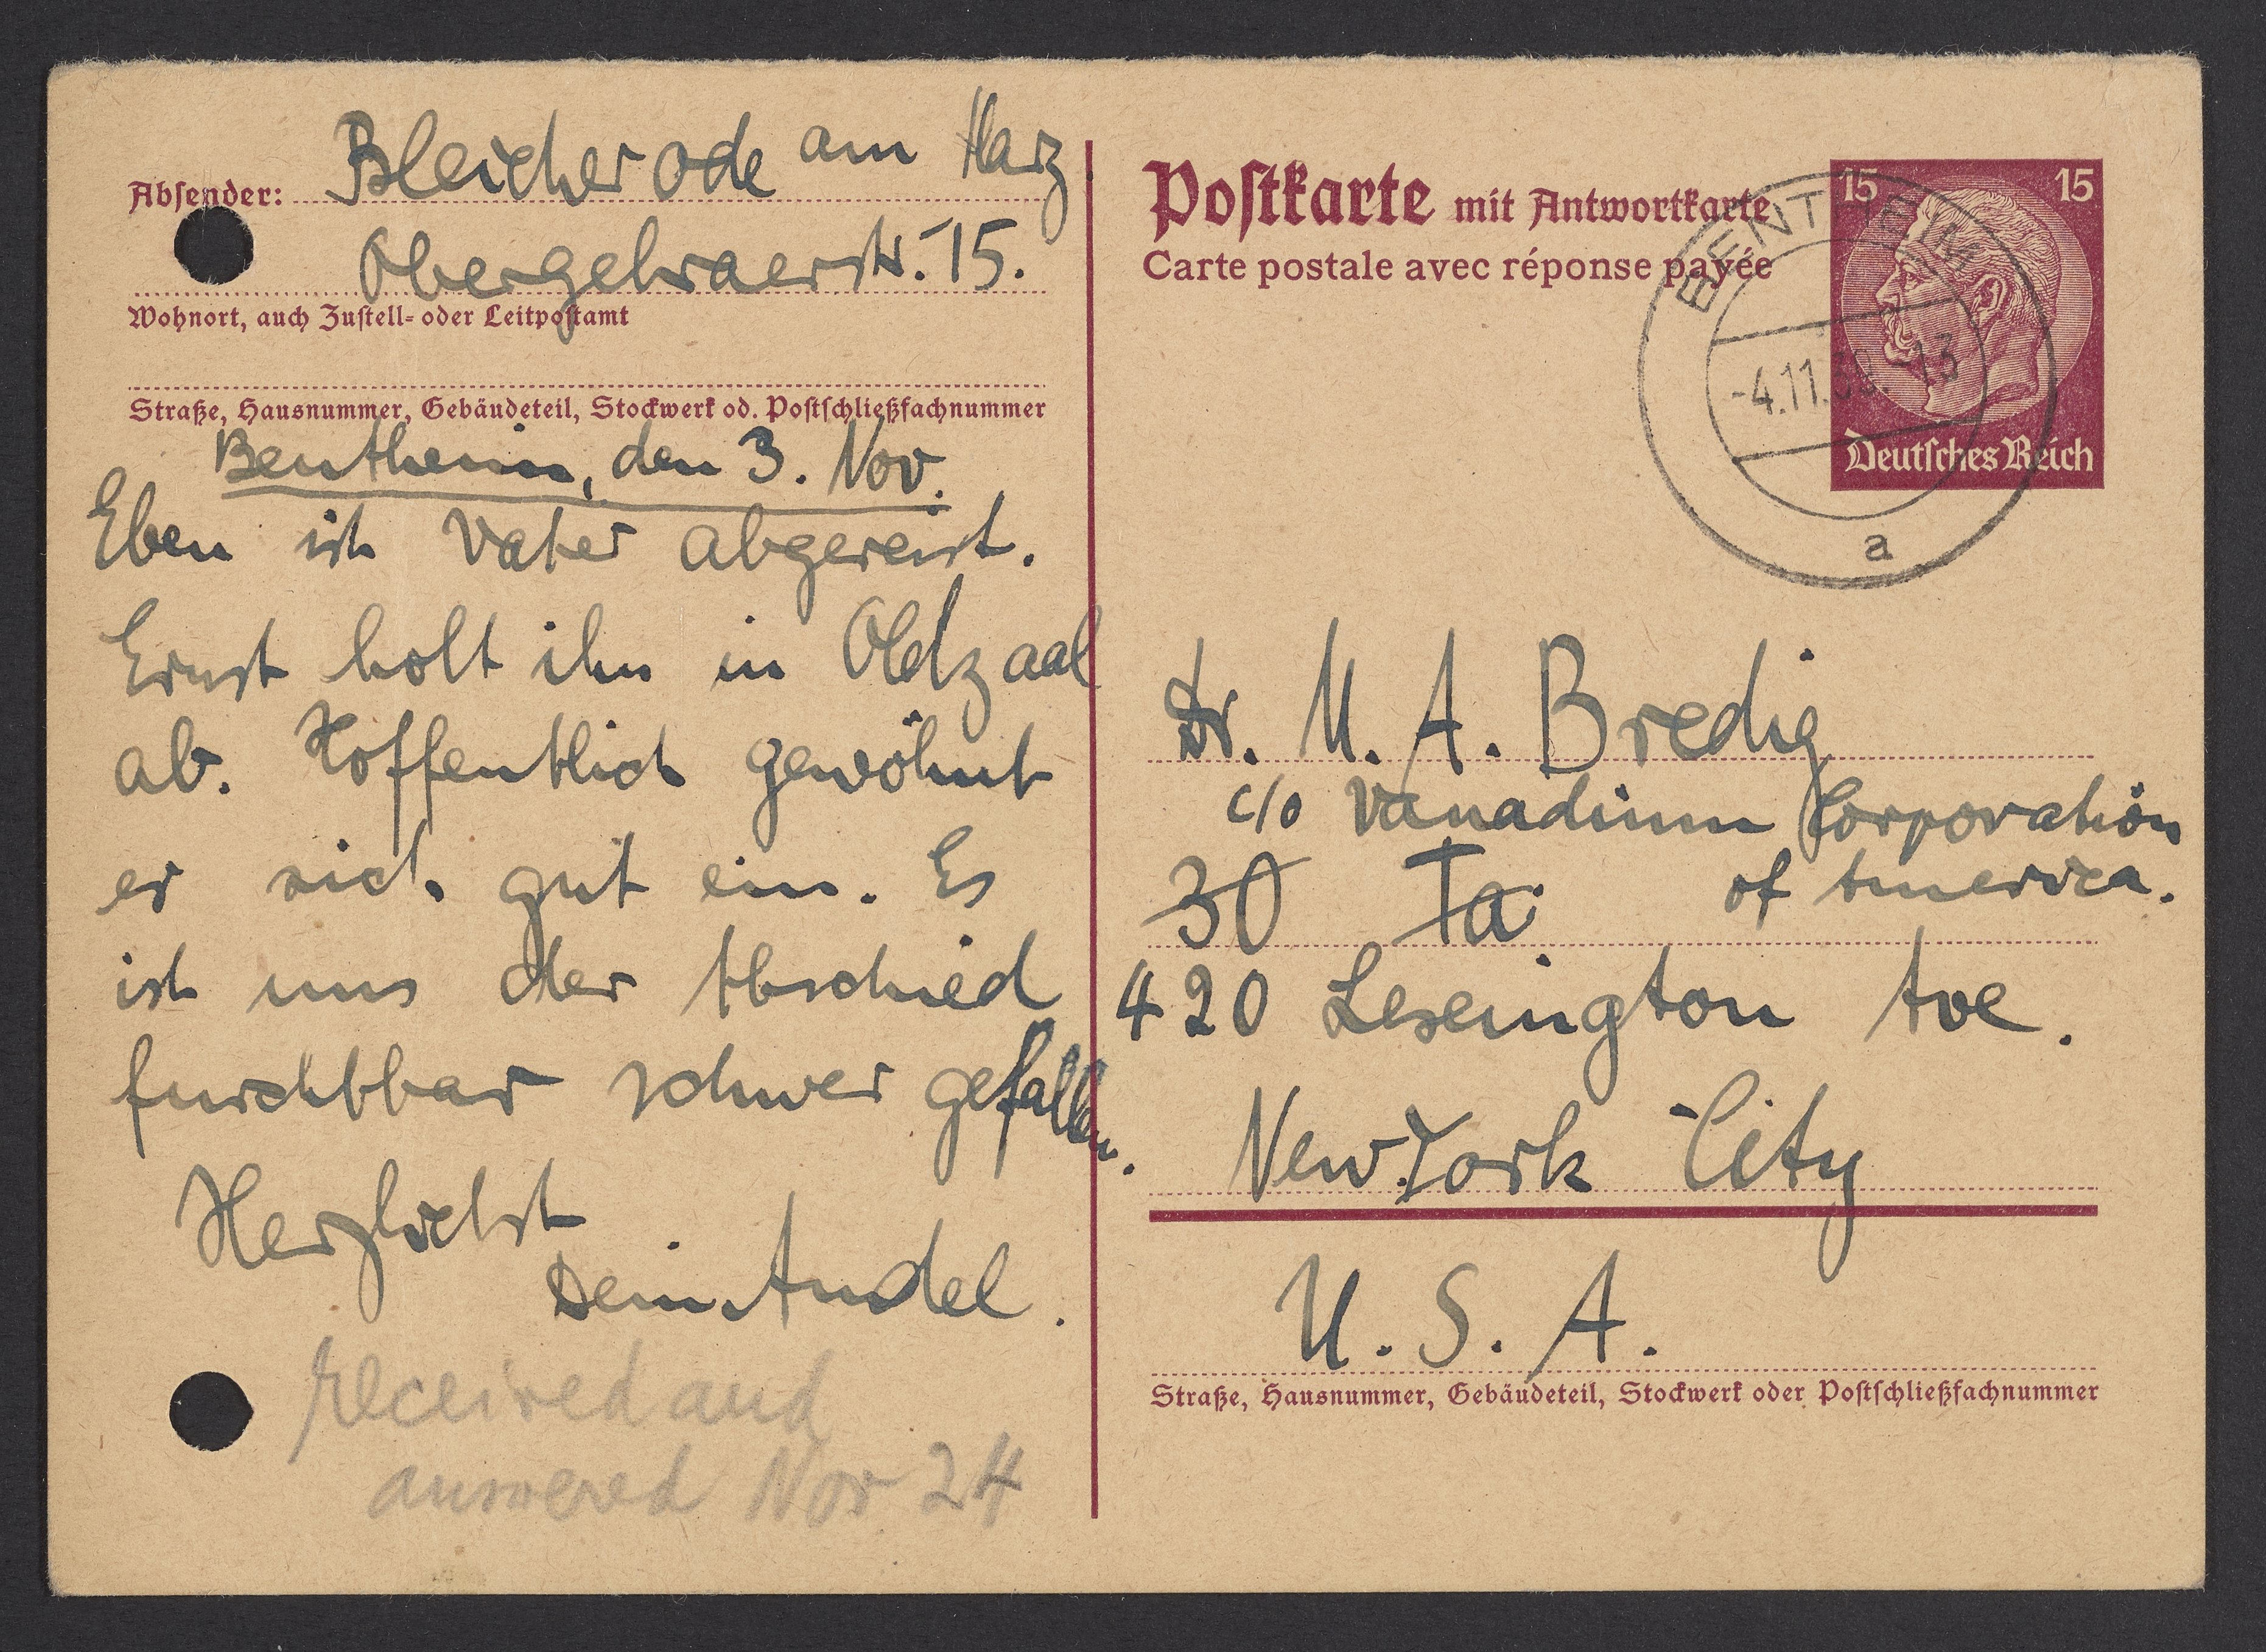 Absender: Bleicherode am Harz
Obergebraerstr. 15.
Wohnort, auch Zustell- oder Leitpostamt
Straße, Hausnummer, Gebäudeteil, Stockwerk od. Postschließfachnummer
Bentheim, den 3. Nov.
Eben ist Vater abgereist.
Ernst holt ihn in Oldzaal
ab. Hoffentlich gewöhnt
er sich gut ein. Es
ist uns der Abschied
furchtbar schwer gefallen.
Herzlichst
Dein Andel.
received and
answered Nov 24
Postkarte mit Antwortkarte
Carte postale avec réponse payée
15 15
Deutsches Reich
BENTHEIM
-4.11.39.-13
a
Dr. M. A. Bredig
c/o Vanadium Corporation
30 Ta of America.
420 Lexington Ave.
New York City
U. S. A.
Straße, Hausnummer, Gebäudeteil, Stockwerk oder Postschließfachnummer